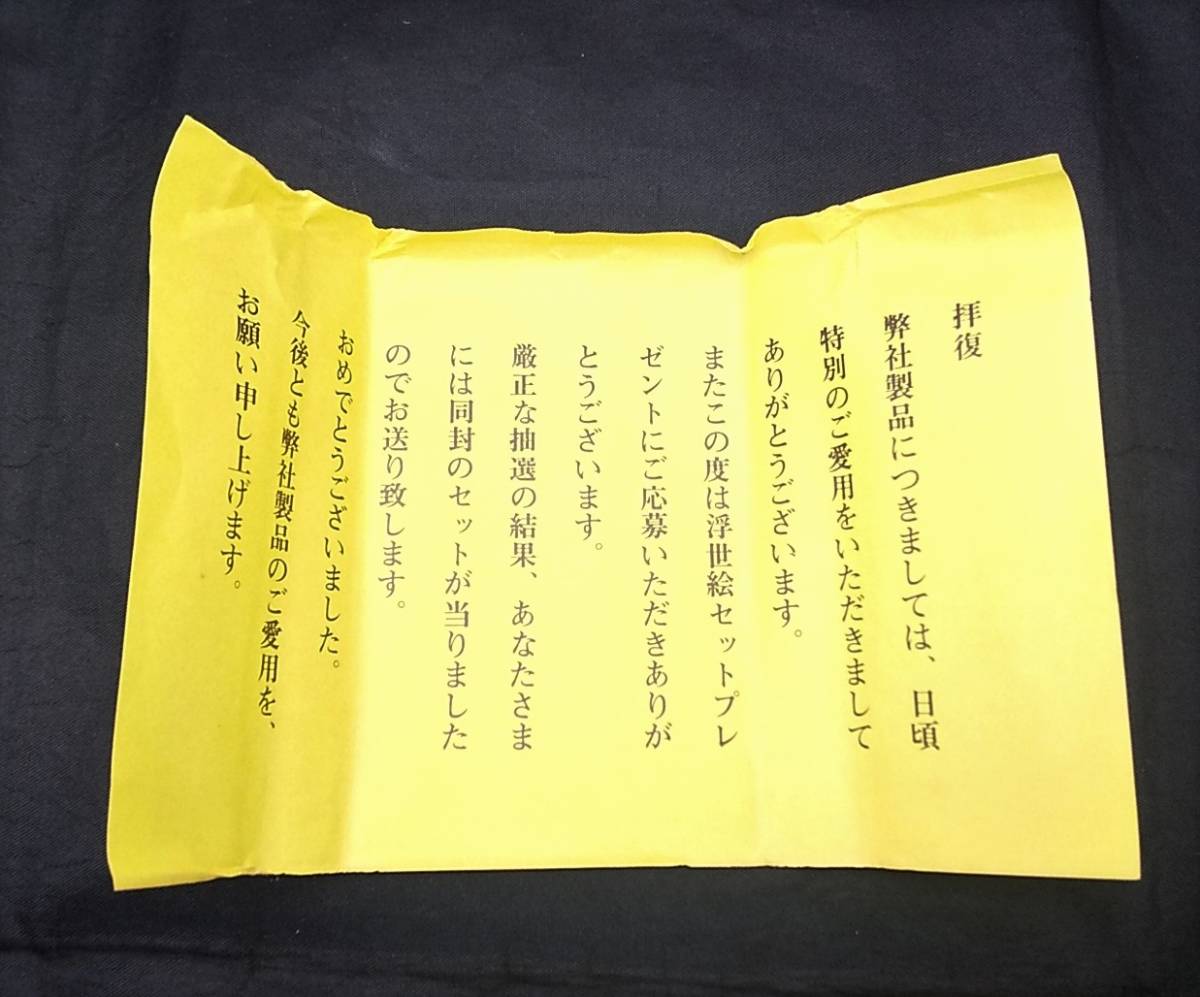 拝復
弊社製品につきましては、日頃
特別のご愛用をいただきまして
ありがとうございます。
またこの度は浮世絵セットプレ
ゼントにご応募いただきありが
とうございます。
厳正な抽選の結果、あなたさま
には同封のセットが当りました
のでお送り致します。
おめでとうございました。
今後とも弊社製品のご愛用を、
お願い申し上げます。